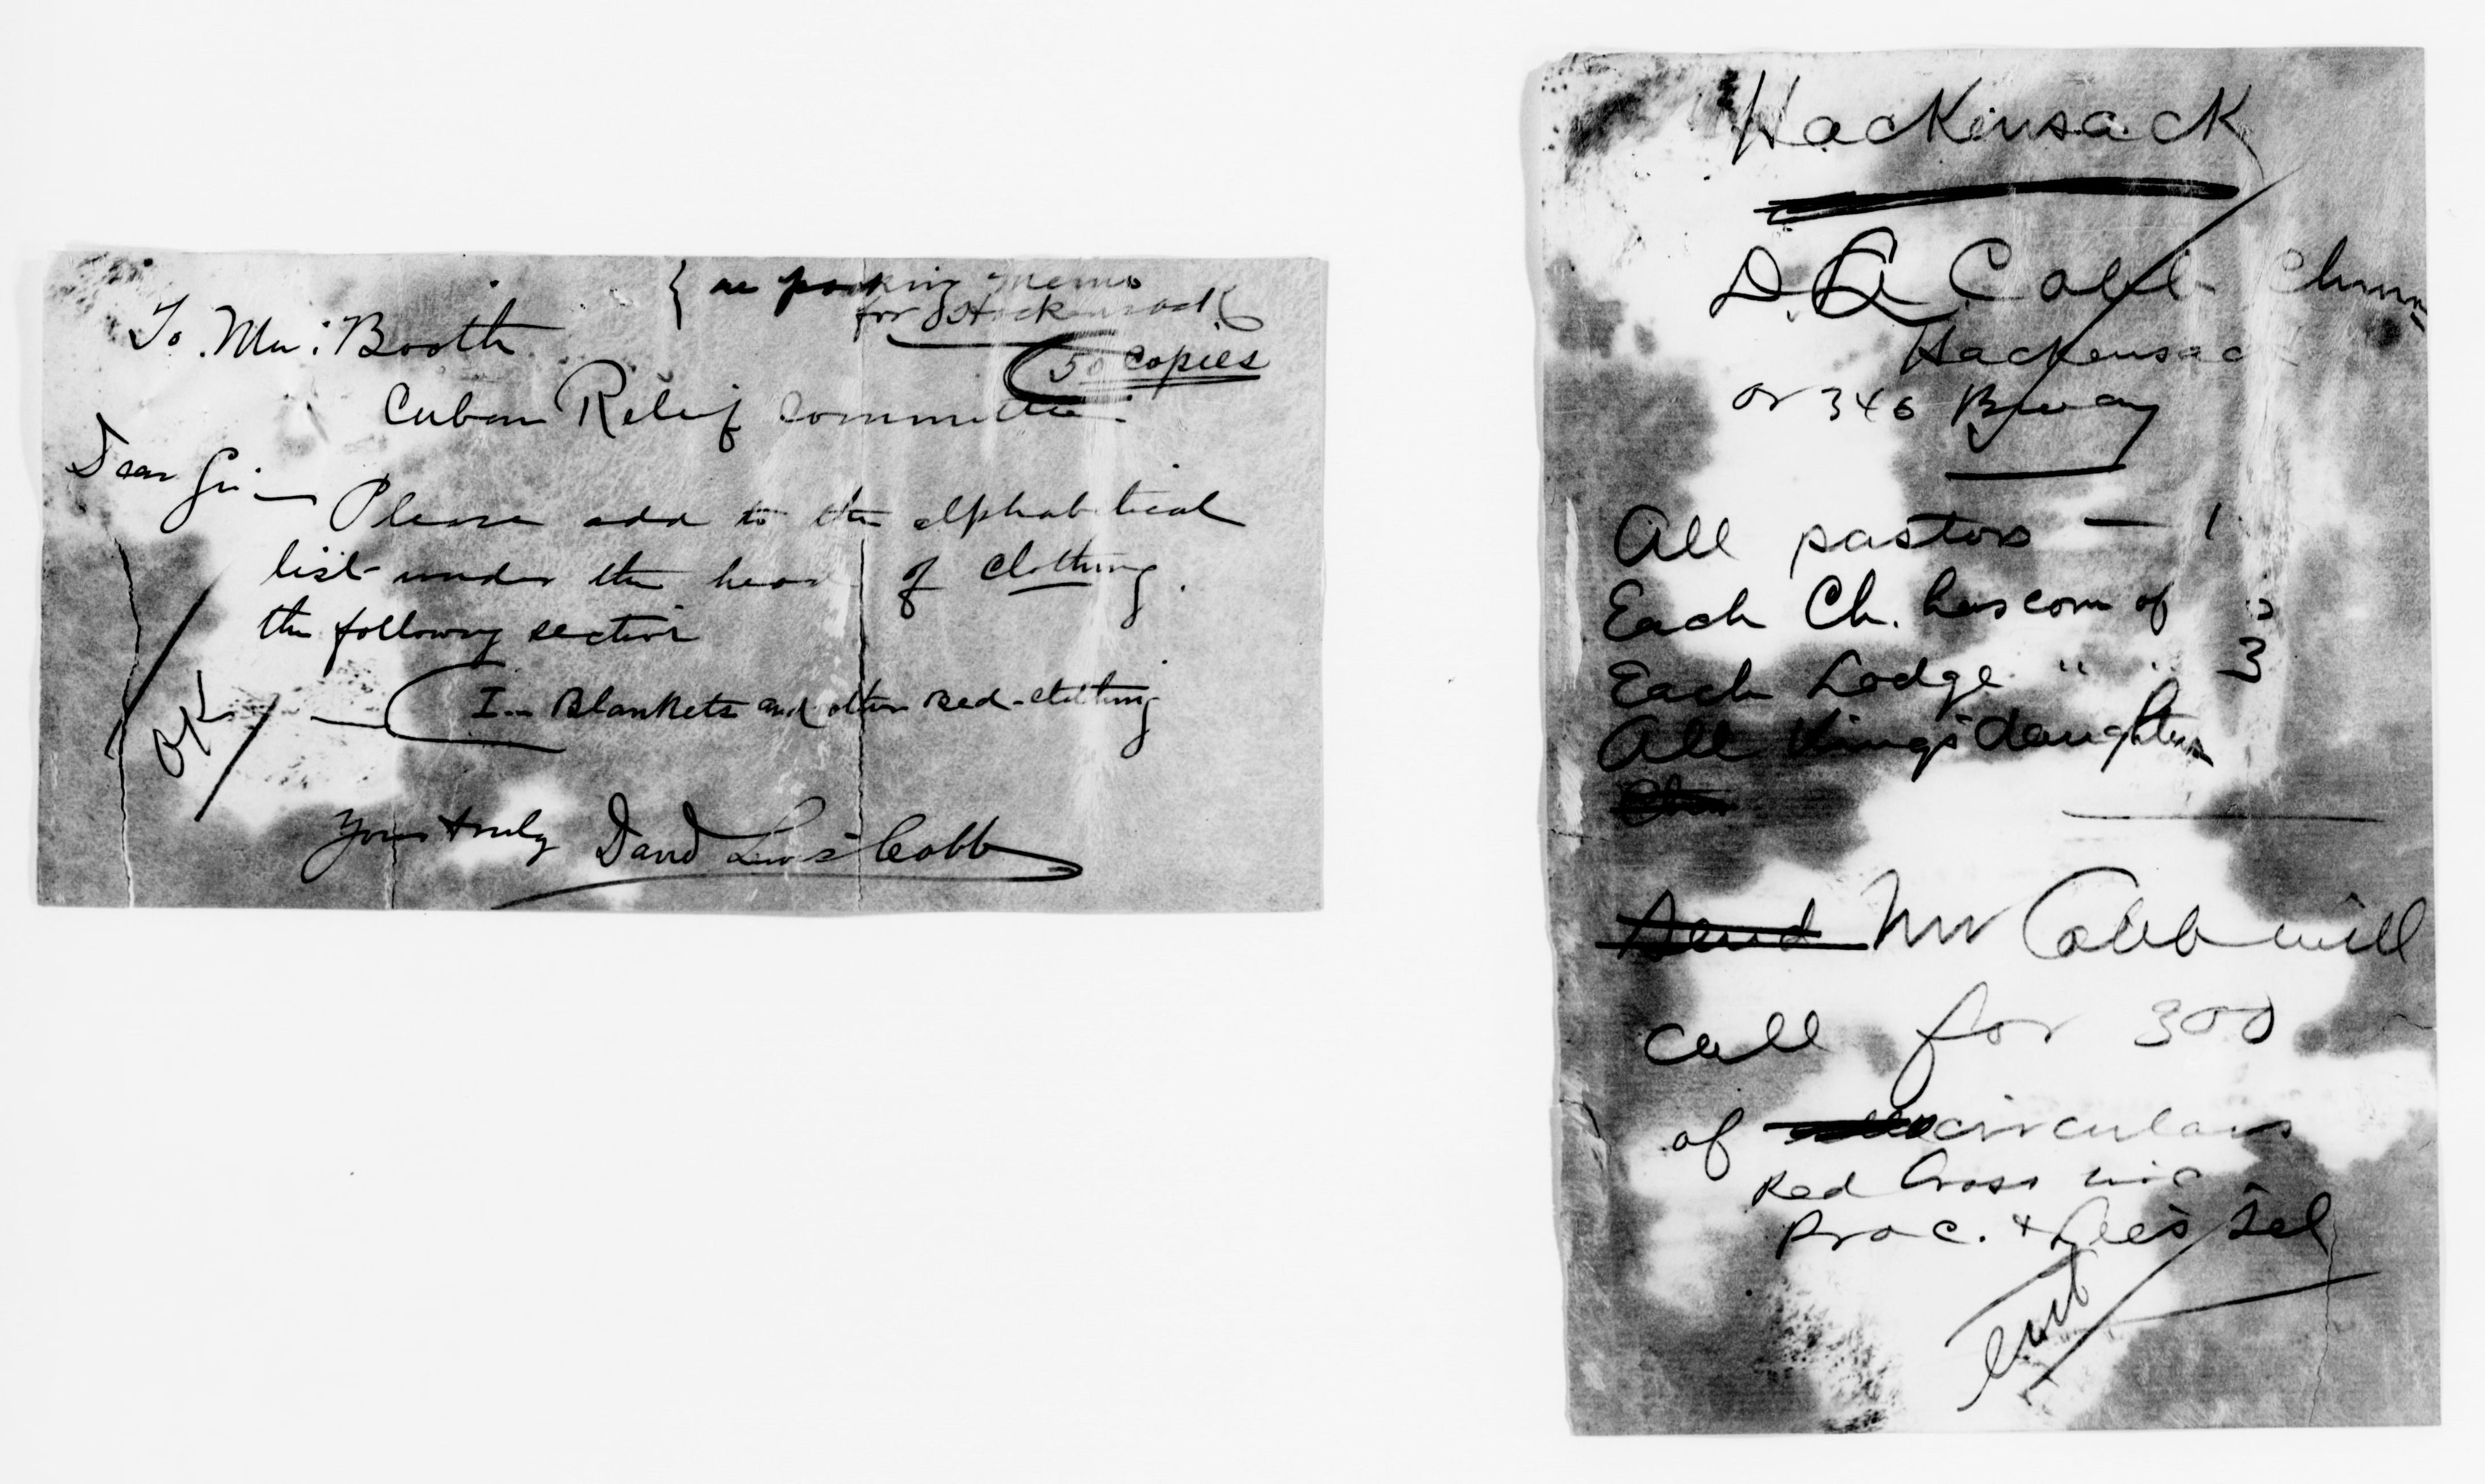 To Mr: Booth
{ packing memo
for Hackensack
50 copies
Cuban Relief Committee:
Dear Sir — Please add to the alphabetical
list under the head of Clothing.
the following section
I -- Blankets and other Bed-clothing
OK
Yours truly David Lewis Cobb
Hackensack
D. Cobb
Hackensack
or 346 Bway
All pastors — 1
Each Ch. has com of
Each Lodge " " 3
All Kings daughters
Send Mr Cobb will
call for 300
of circulars
Red Cross
Proc. & Lee's Tel